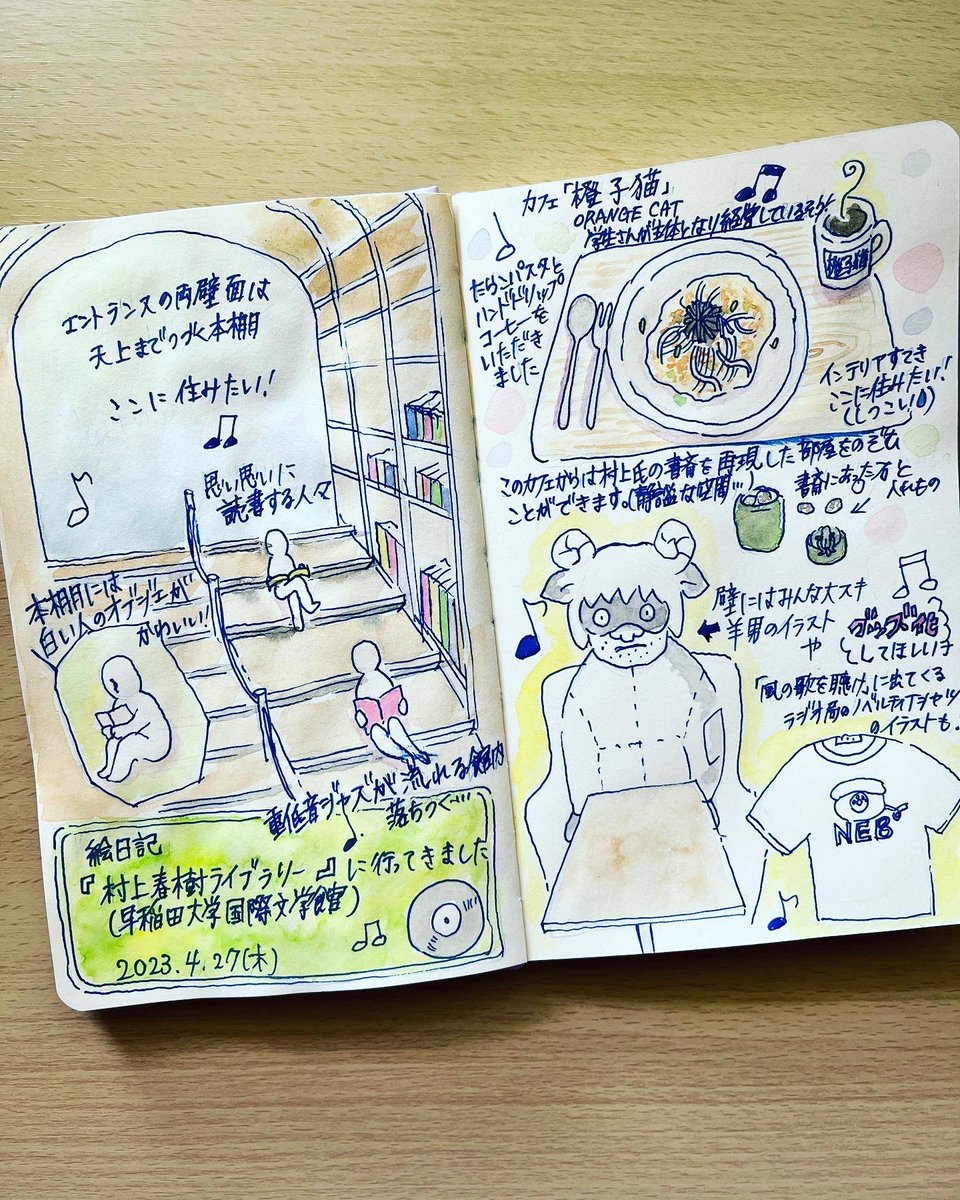 エントランスの両壁面は
天上までつづく本棚
ここに住みたい!
思い思いに
読書する人々
本棚には
白い人のオブジェが
かわいい!
重低音ジャズが流れる館内
落ちつく…
絵日記
『村上春樹ライブラリー』に行ってきました
(早稲田大学国際文学館)
2023.4.27(木)
カフェ「橙子猫」
ORANGE CAT
学生さんが主体となり経営しているそう
橙子猫
たらこパスタと
ハンドドリップ
コーヒーを
いただき
ました
インテリアすてき
ここに住みたい!
(しつこい)
このカフェからは村上氏の書斎を再現した部屋をのぞむ
ことができます。(静謐な空間…)
書斎にあった石と
入れもの
壁にはみんな大スキ
羊男のイラスト
や
グッズ化
としてほしい
「風の歌を聴け」に出てくる
ラジオ局のノベルティTシャツ
のイラストも.
NEB